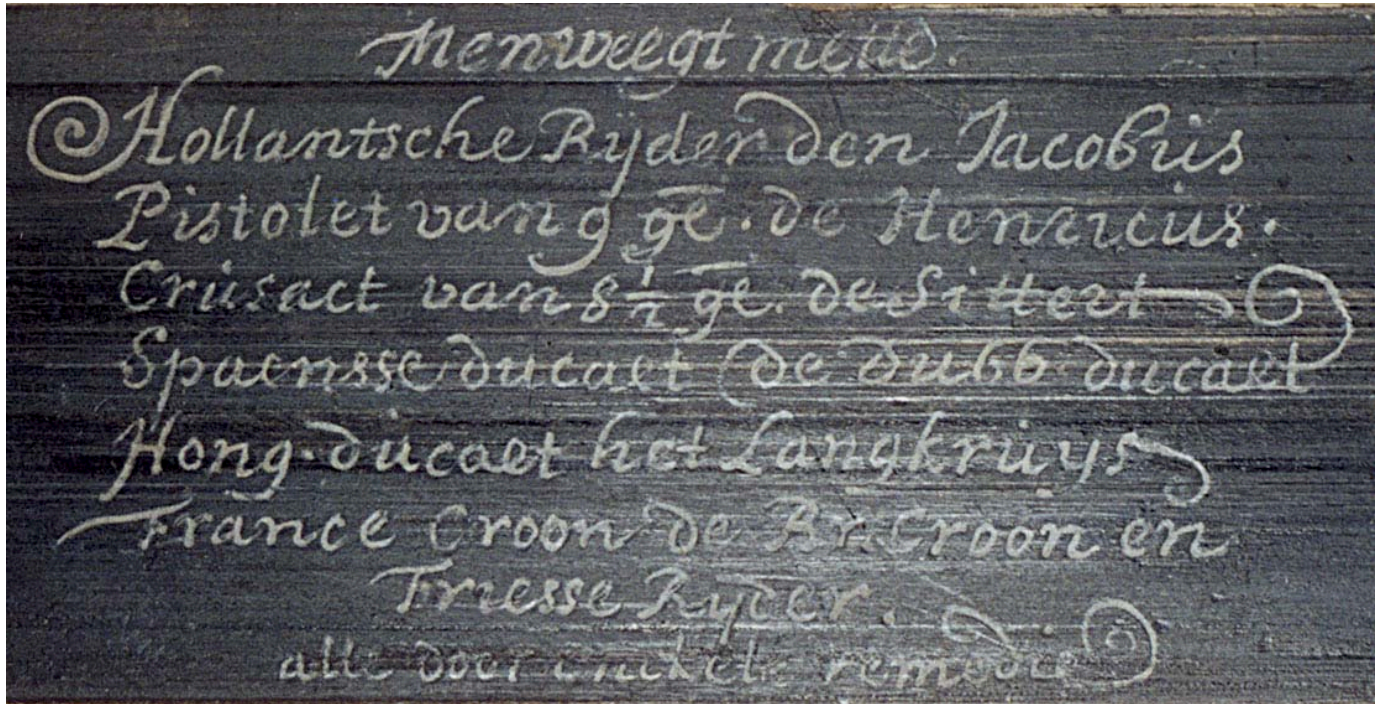 Men weegt mette.
Hollantsche Ryder den Jacobus
Pistolet van 9 ge. de Henricus.
Crusaet van 8 1/2 ge. de Sittert
Spaensse ducaet de dubb. ducaet
Hong. ducaet het Langkruys
France Croon de Br. Croon en
Friesse Ryder.
alle door enkele remedie